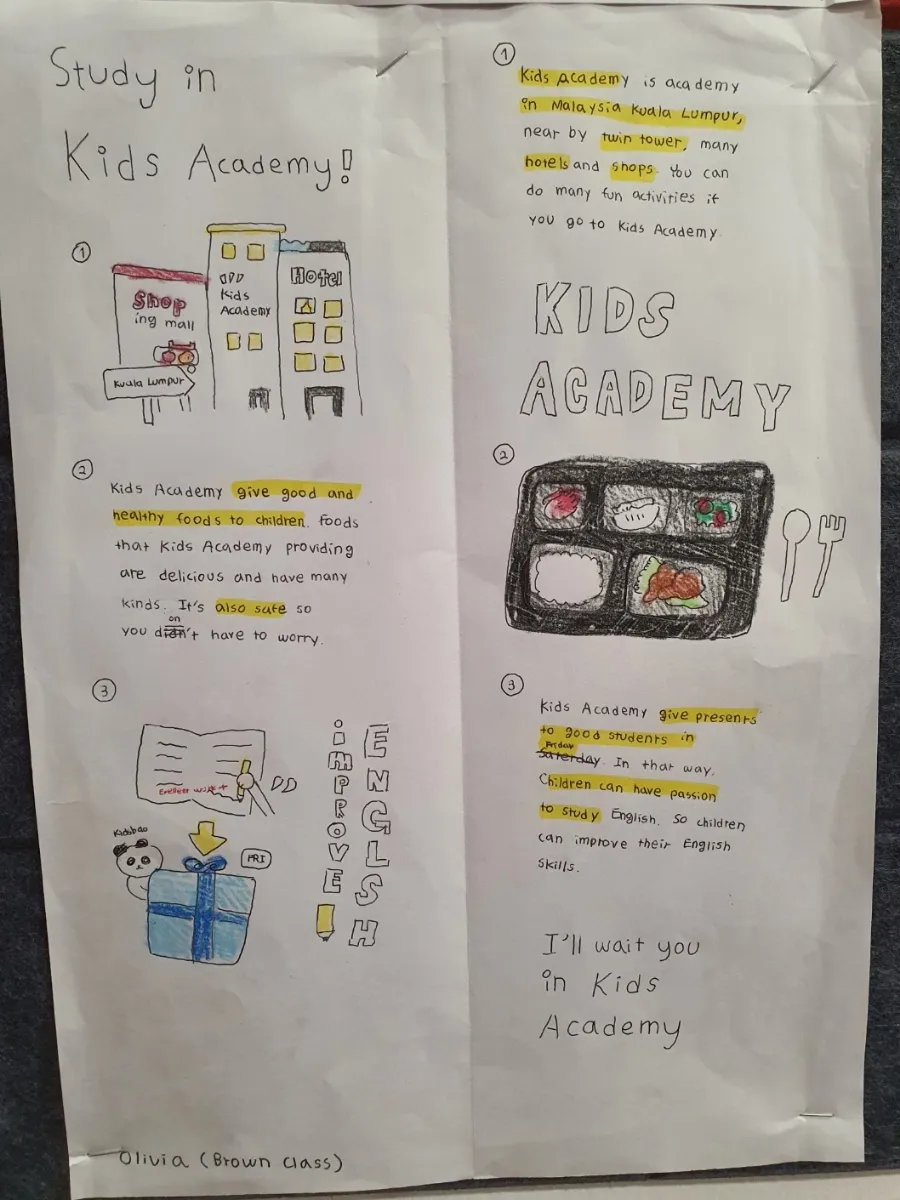 Study in
Kids Academy!
①
Shop
ing mall
Kids
Academy
Hotel
Kuala Lumpur
②
Kids Academy give good and
healthy foods to children. Foods
that Kids Academy providing
are delicious and have many
kinds. It's also safe so
on
you didn't have to worry.
③
Excellent work
Kidsbao
FRI
IMPROVE
ENGLSH
Olivia (Brown Class)
①
Kids Academy is academy
in Malaysia Kuala Lumpur,
near by twin tower, many
hotels and shops. You can
do many fun activities if
you go to Kids Academy.
KIDS
ACADEMY
②
③
Kids Academy give presents
to good students in
Friday
Saterday. In that way,
Children can have passion
to study English. So children
can improve their English
skills.
I'll wait you
in Kids
Academy